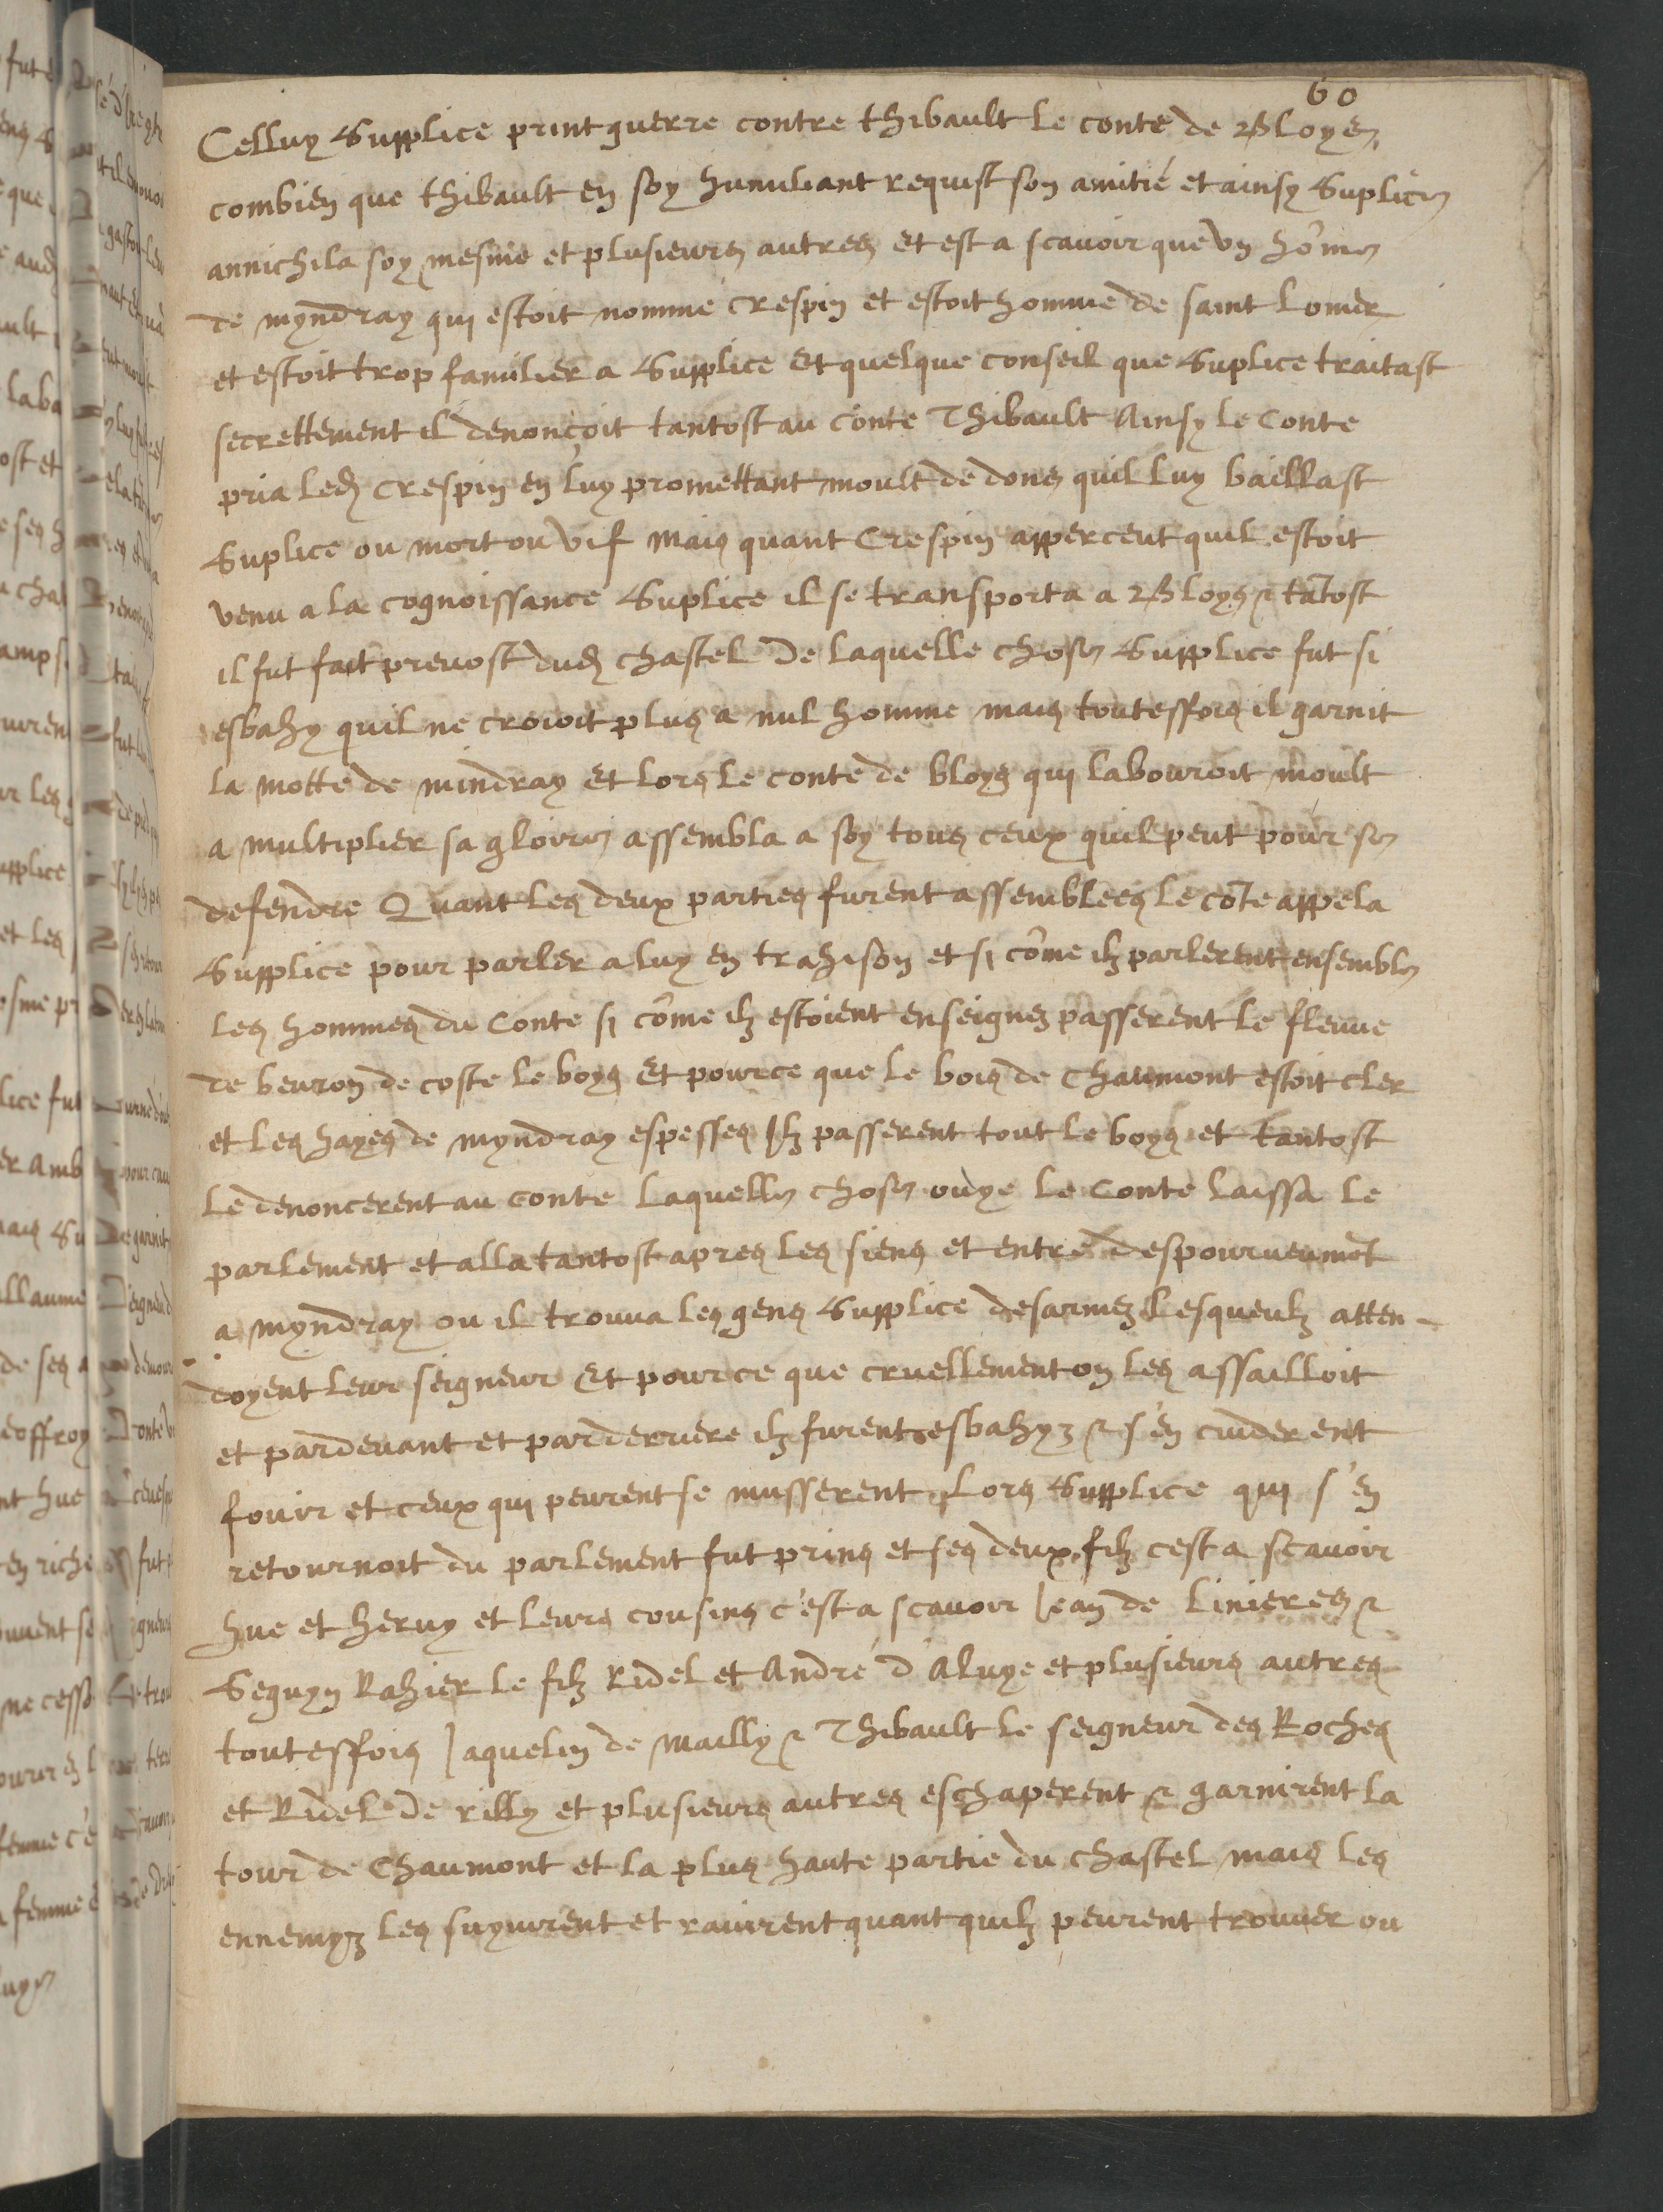 60
Celluy Supplice print guerre contre thibault le conte de Bloys
combien que thibault en soy humiliant requist son amitié et ainsy Suplice
annichila soy mesme et plusieurs autres et est a scavoir que un hōme
de myndray qui estoit nomme crespin et estoit homme de saint Lomer
et estoit trop familier a Supplice Et quelque conseil que Suplice traitast
secrettement il denoncoit tantost au conte Thibault Ainsy le Conte
pria led crespin en luy promettant moult de dons quil luy baillast
Suplice ou mort ou vif Mais quant Crespin apperceut quil estoit
venu a la cognoissance Suplice il se transporta a Bloys & tātost
il fut fait prevost dud chastel De laquelle chose Supplice fut si
esbahy quil ne croioit plus a nul homme mais touteffois il garnit
la motte de mindray Et lors le conte de bloys qui labouroit moult
a multiplier sa gloire assembla a soy tous ceux quil peut pour se
defendre Quant les deux parties furent assemblees le cōte appela
Supplice pour parler a luy en trahison et si cōme ilz parlerent ensemble
les hommes du Conte si cōme ilz estoient enseignez passerent le fleuve
de beuron de coste le boys Et pource que le bois de Chaumont estoit cler
et les hayes de myndray espesses Ilz passerent tout le boys et tantost
le denoncerent au conte laquelle chose ouye le Conte laissa le
parlement et alla tantost apres les siens et entre despourveumēt
a myndray ou il trouva les gens Supplice desarmez Lesqueulz atten-
doyent leur seigneur Et pource que cruellement on les assailloit
et pardevant et parderriere ilz furent esbahyz & s'en cuiderent
fouir et ceux qui peurent se musserent Lors Supplice qui s'en
retournoit du parlement fut prins et ses deux filz cest a scavoir
hue et hervy et leurs cousins c'est a scavoir Jean de Linieres &
Seguyn Rahier le filz Ridel et André d'Aluye et plusieurs autres
touteffois Jaquelin de Mailly & Thibault le seigneur des Roches
et Ridel de rilly et plusieurs autres eschaperent & garnirent la
tour de Chaumont et la plus haute partie du chastel mais les
ennemyz les suyvirent et ravirent quant quilz peurent trouver ou